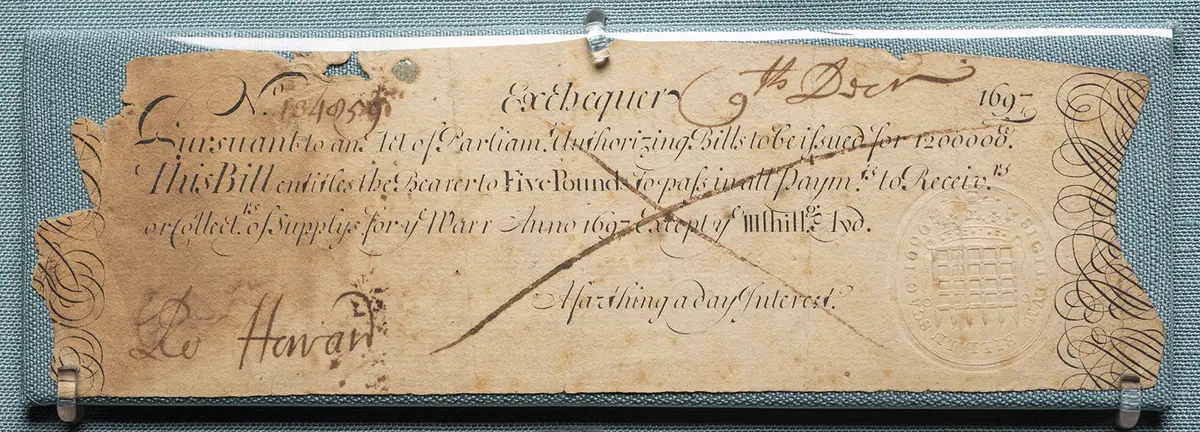 N.º 134859 Exchequer 9th Decr 1697
Pursuant to an Act of Parliam.t Authorizing Bills to be issued for 1200000£.
This Bill entitles the Bearer to Five Pounds to pass in all Paym.ts to Receiv.rs
or Collect.rs of Supplys for ye Warr Anno 1697 Except ye IIIshill.gs Ayd.
A farthing a day Interest.
Ro Howard